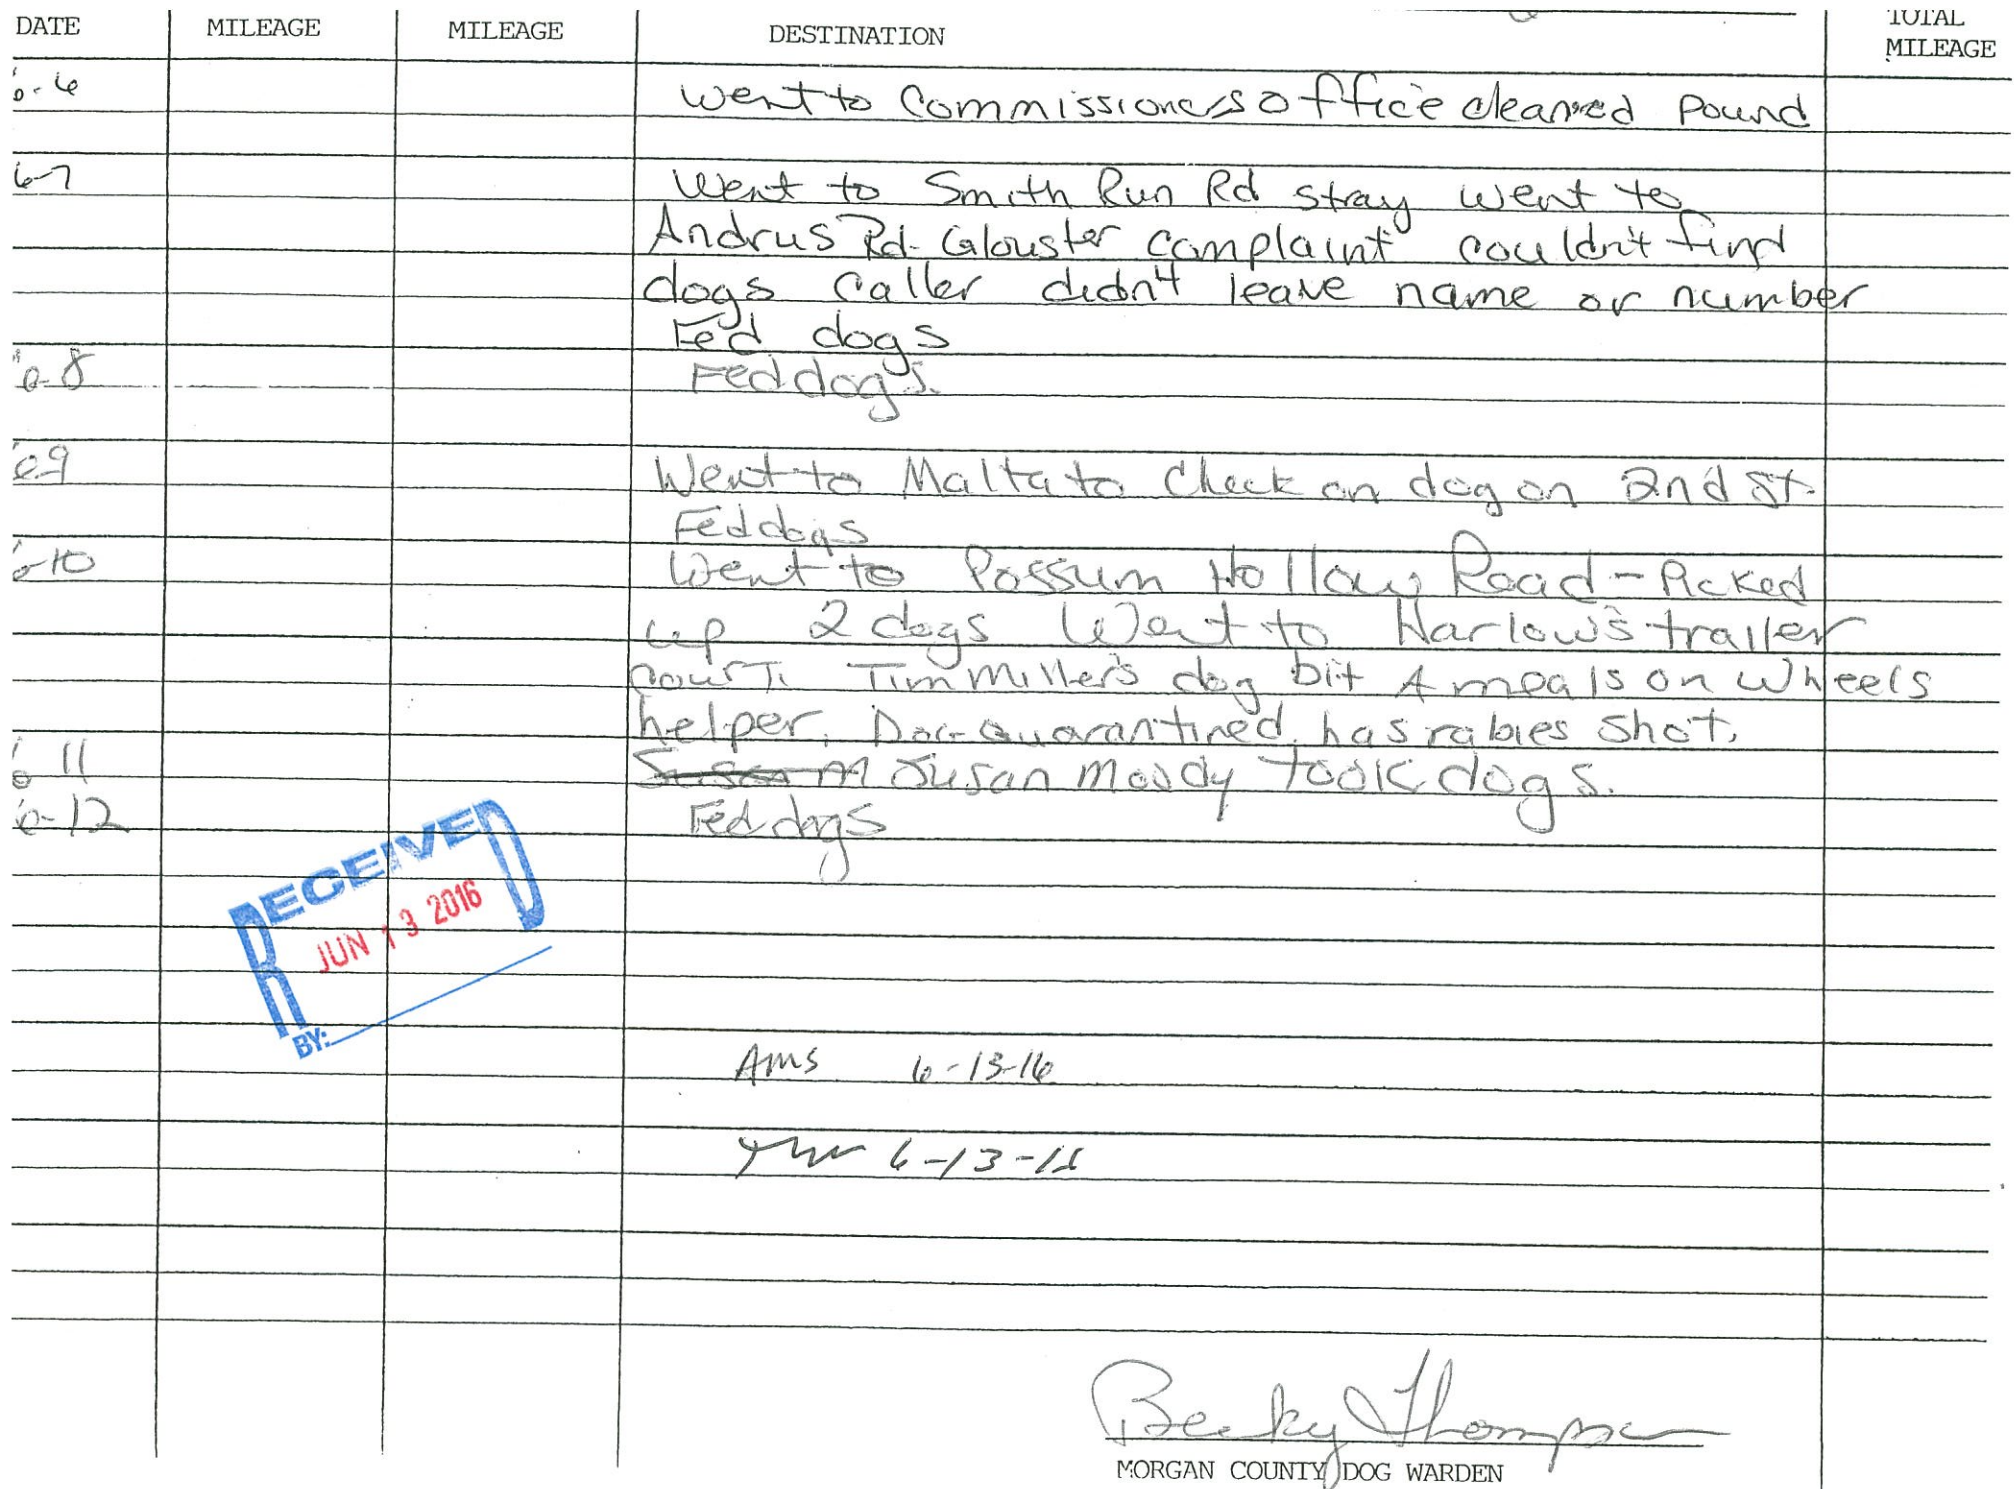 DATE MILEAGE MILEAGE DESTINATION TOTAL MILEAGE
6-6 Went to Commissioners office cleaned pound
6-7 Went to Smith Run Rd stray went to
Andrus Rd-Glouster complaint couldn't find
dogs caller didn't leave name or number
Fed dogs
6-8 Fed dogs.
6-9 Went to Malta to check on dog on 2nd St.
Fed dogs
6-10 Went to Possum Hollow Road - Picked
up 2 dogs Went to Harlow's trailer
court. Tim Miller's dog bit A meals on wheels
helper. Dog quarantined, has rabies shot.
6-11 Susan M Susan Moody took dogs.
6-12 Fed dogs
RECEIVED
JUN 13 2016
BY:
AMS 6-13-16
6-13-16
Becky Thompson
MORGAN COUNTY DOG WARDEN